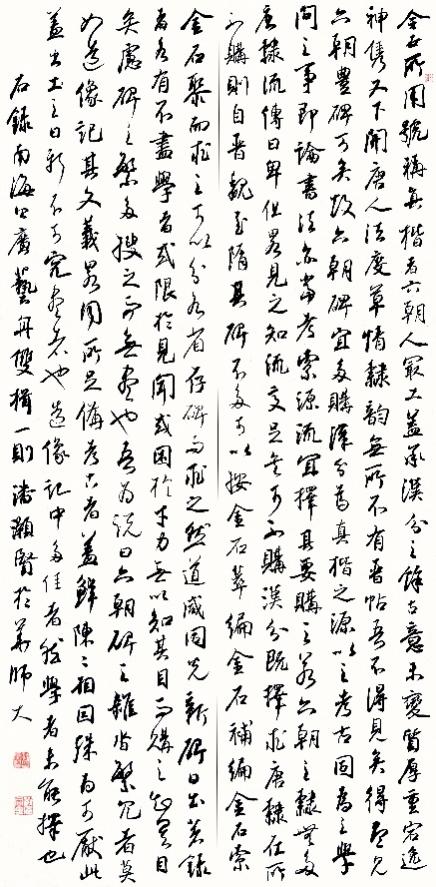 今世所用號稱真楷者六朝人最工蓋承漢分之餘古意未變質厚重宕逸
神雋又下開唐人法度草情隸韻無所不有晉帖吾不得見矣得盡見
六朝豐碑可矣故六朝碑宜多購漢分為真楷之源以之考古固為之學
問之事即論書法亦當考索源流宜擇其要購之若六朝之隸無多
唐隸流傳日卑但略見之知流變足矣可不購漢分既擇求唐隸在所
不購則自晉魏至隋其碑不多可以按金石萃編金石補編金石索
金石聚而求之可以分各省存碑而求之然道咸同光新碑日出著錄
者各有不盡學者或限於見聞或困於才力無以知其目而購之知其目
矣慮碑之繁多搜之而無盡也吾為說曰六朝碑之雜沓繁冗者莫
如造像記其文義略同所足備考古者蓋鮮陳陳相因殊為可厭此
蓋出土之日新不可究盡者也造像記中多佳者然學者未能擇也
右錄南海公廣藝舟雙楫一則潘顯賢於華師大